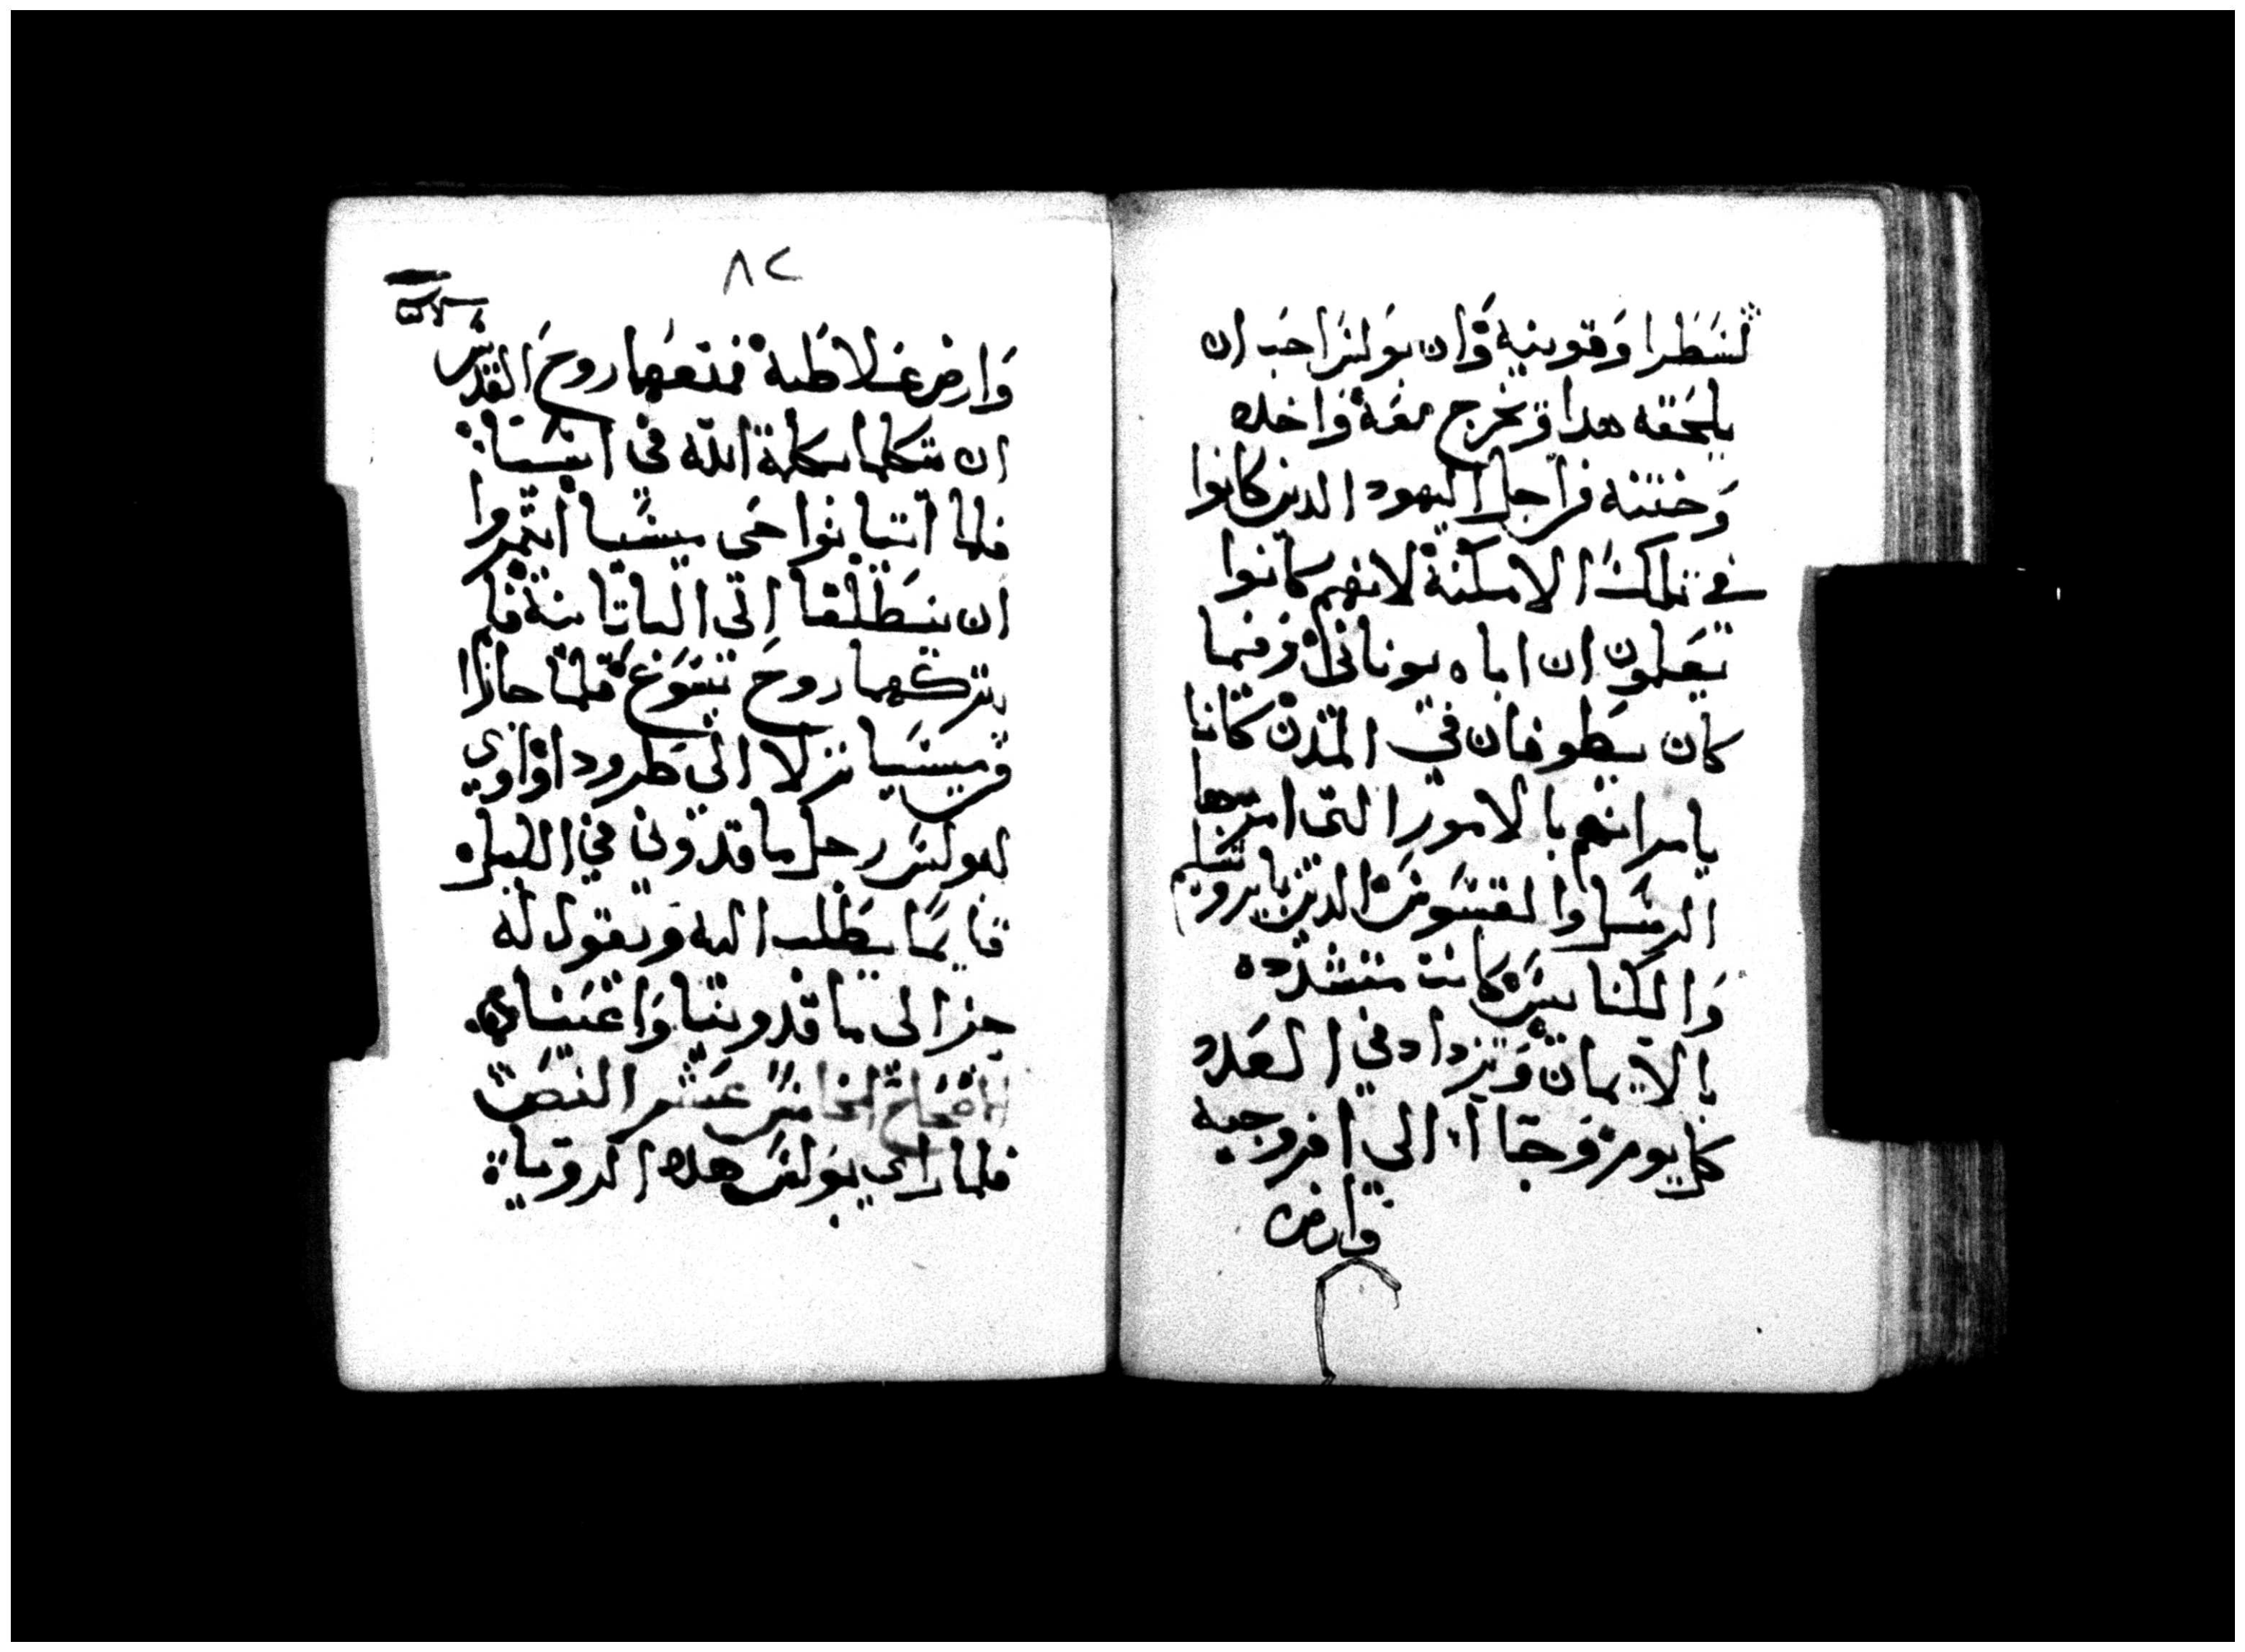 لسطرا وقونية وان بولس احب ان
يلحقه هدا ويخرج معه واخده
وختنه من اجل اليهود الدين كانوا
في تلك الامكنة لانهم كانوا
يعلمون ان اباه يوناني وفيما
كان يطوفان في المدن كانا
يامرانهم بالامور التي امر بها
الرسل والقسوس الدين بايروشليم
والكنايس كانت تتشدده
بالايمان وتزداد في العدد
كل يوم وجا الي افروجيه
وارض
٨٢
وارض غلاطية فمنعهما روح القدس
ان يتكلما بكلمة الله في اسيا
فلما اتيا نواحي ميسيا ايتمروا
ان ينطلقا الي الباتانية فلم
يتركهما روح يسوع فلما جازا
ميسيا نزلا الي طرود اواوي
لبولس رجل ماقدوني في الليل
قايما يطلب اليه ويقول له
جز الي ماقدونيا واعنيا
الاصحاح الخامس عشر النص
فلما راي بولس هده الروياة